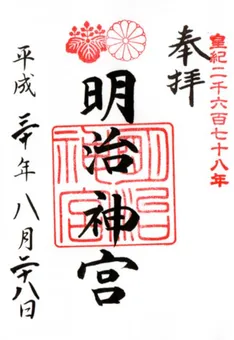 皇紀二千六百七十八年
奉拝
明治神宮
明治神宮
平成三十年八月二十八日